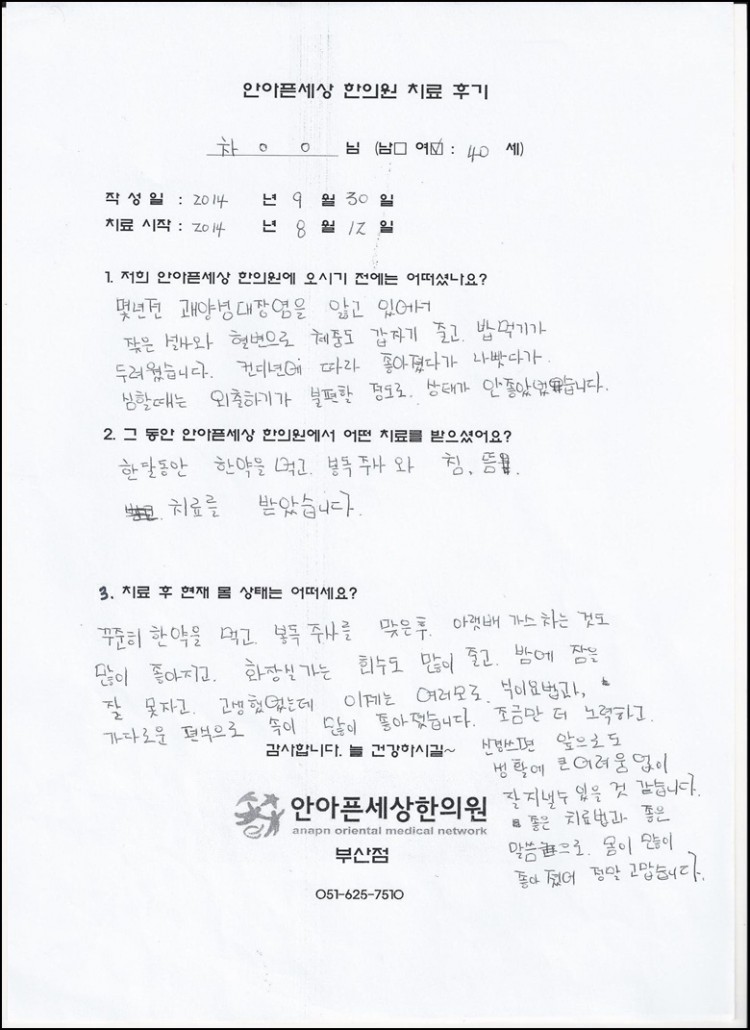 안아픈세상 한의원 치료 후기
차 ○ ○ 님 (남☐ 여☑ : 40 세)
작 성 일 : 2014 년 9 월 30 일
치료 시작 : 2014 년 8 월 12 일
1. 저희 안아픈세상 한의원에 오시기 전에는 어떠셨나요?
몇년전 궤양성대장염을 앓고 있어서
잦은 설사와 혈변으로 체중도 갑자기 줄고. 밥먹기가
두려웠습니다. 컨디션에 따라 좋아졌다가 나빴다가.
심할때는 외출하기가 불편할 정도로. 상태가 안좋았었습니다.
2. 그 동안 안아픈세상 한의원에서 어떤 치료를 받으셨어요?
한달동안 한약을 먹고. 봉독 주사 와 침, 뜸.
치료를 받았습니다.
3. 치료 후 현재 몸 상태는 어떠세요?
꾸준히 한약을 먹고. 봉독 주사를 맞은후. 아랫배 가스 차는 것도
많이 좋아지고. 화장실가는 회수도 많이 줄고. 밤에 잠을
잘 못자고. 고생했었는데 이제는 여러모로. 식이요법과,
가다로운 편부으로 속이 많이 좋아졌습니다. 조금만 더 노력하고.
신경쓰면 앞으로도
생활에 큰어려움없이
잘지낼수 있을 것 같습니다.
좋은 치료법과 좋은
말씀으로. 몸이 많이
좋아 졌어 정말 고맙습니다.
감사합니다. 늘 건강하시길~
안아픈세상한의원
anapn oriental medical network
부산점
051-625-7510